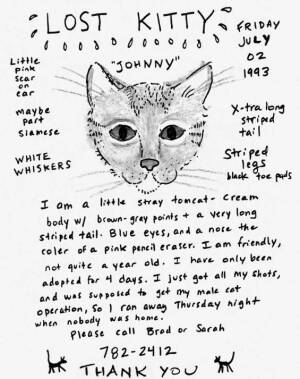 LOST KITTY
FRIDAY
JULY
02
1993
"JOHNNY"
Little
pink
scar
on
ear
maybe
part
siamese
WHITE
WHISKERS
X-tra long
striped
tail
Striped
legs
black toe pads
I am a little stray tomcat - cream
body w/ brown-gray points + a very long
striped tail. Blue eyes, and a nose the
color of a pink pencil eraser. I am friendly,
not quite a year old. I have only been
adopted for 4 days. I just got all my shots,
and was supposed to get my male cat
operation, so I ran away Thursday night
when nobody was home.
Please call Brad or Sarah
782-2412
THANK YOU